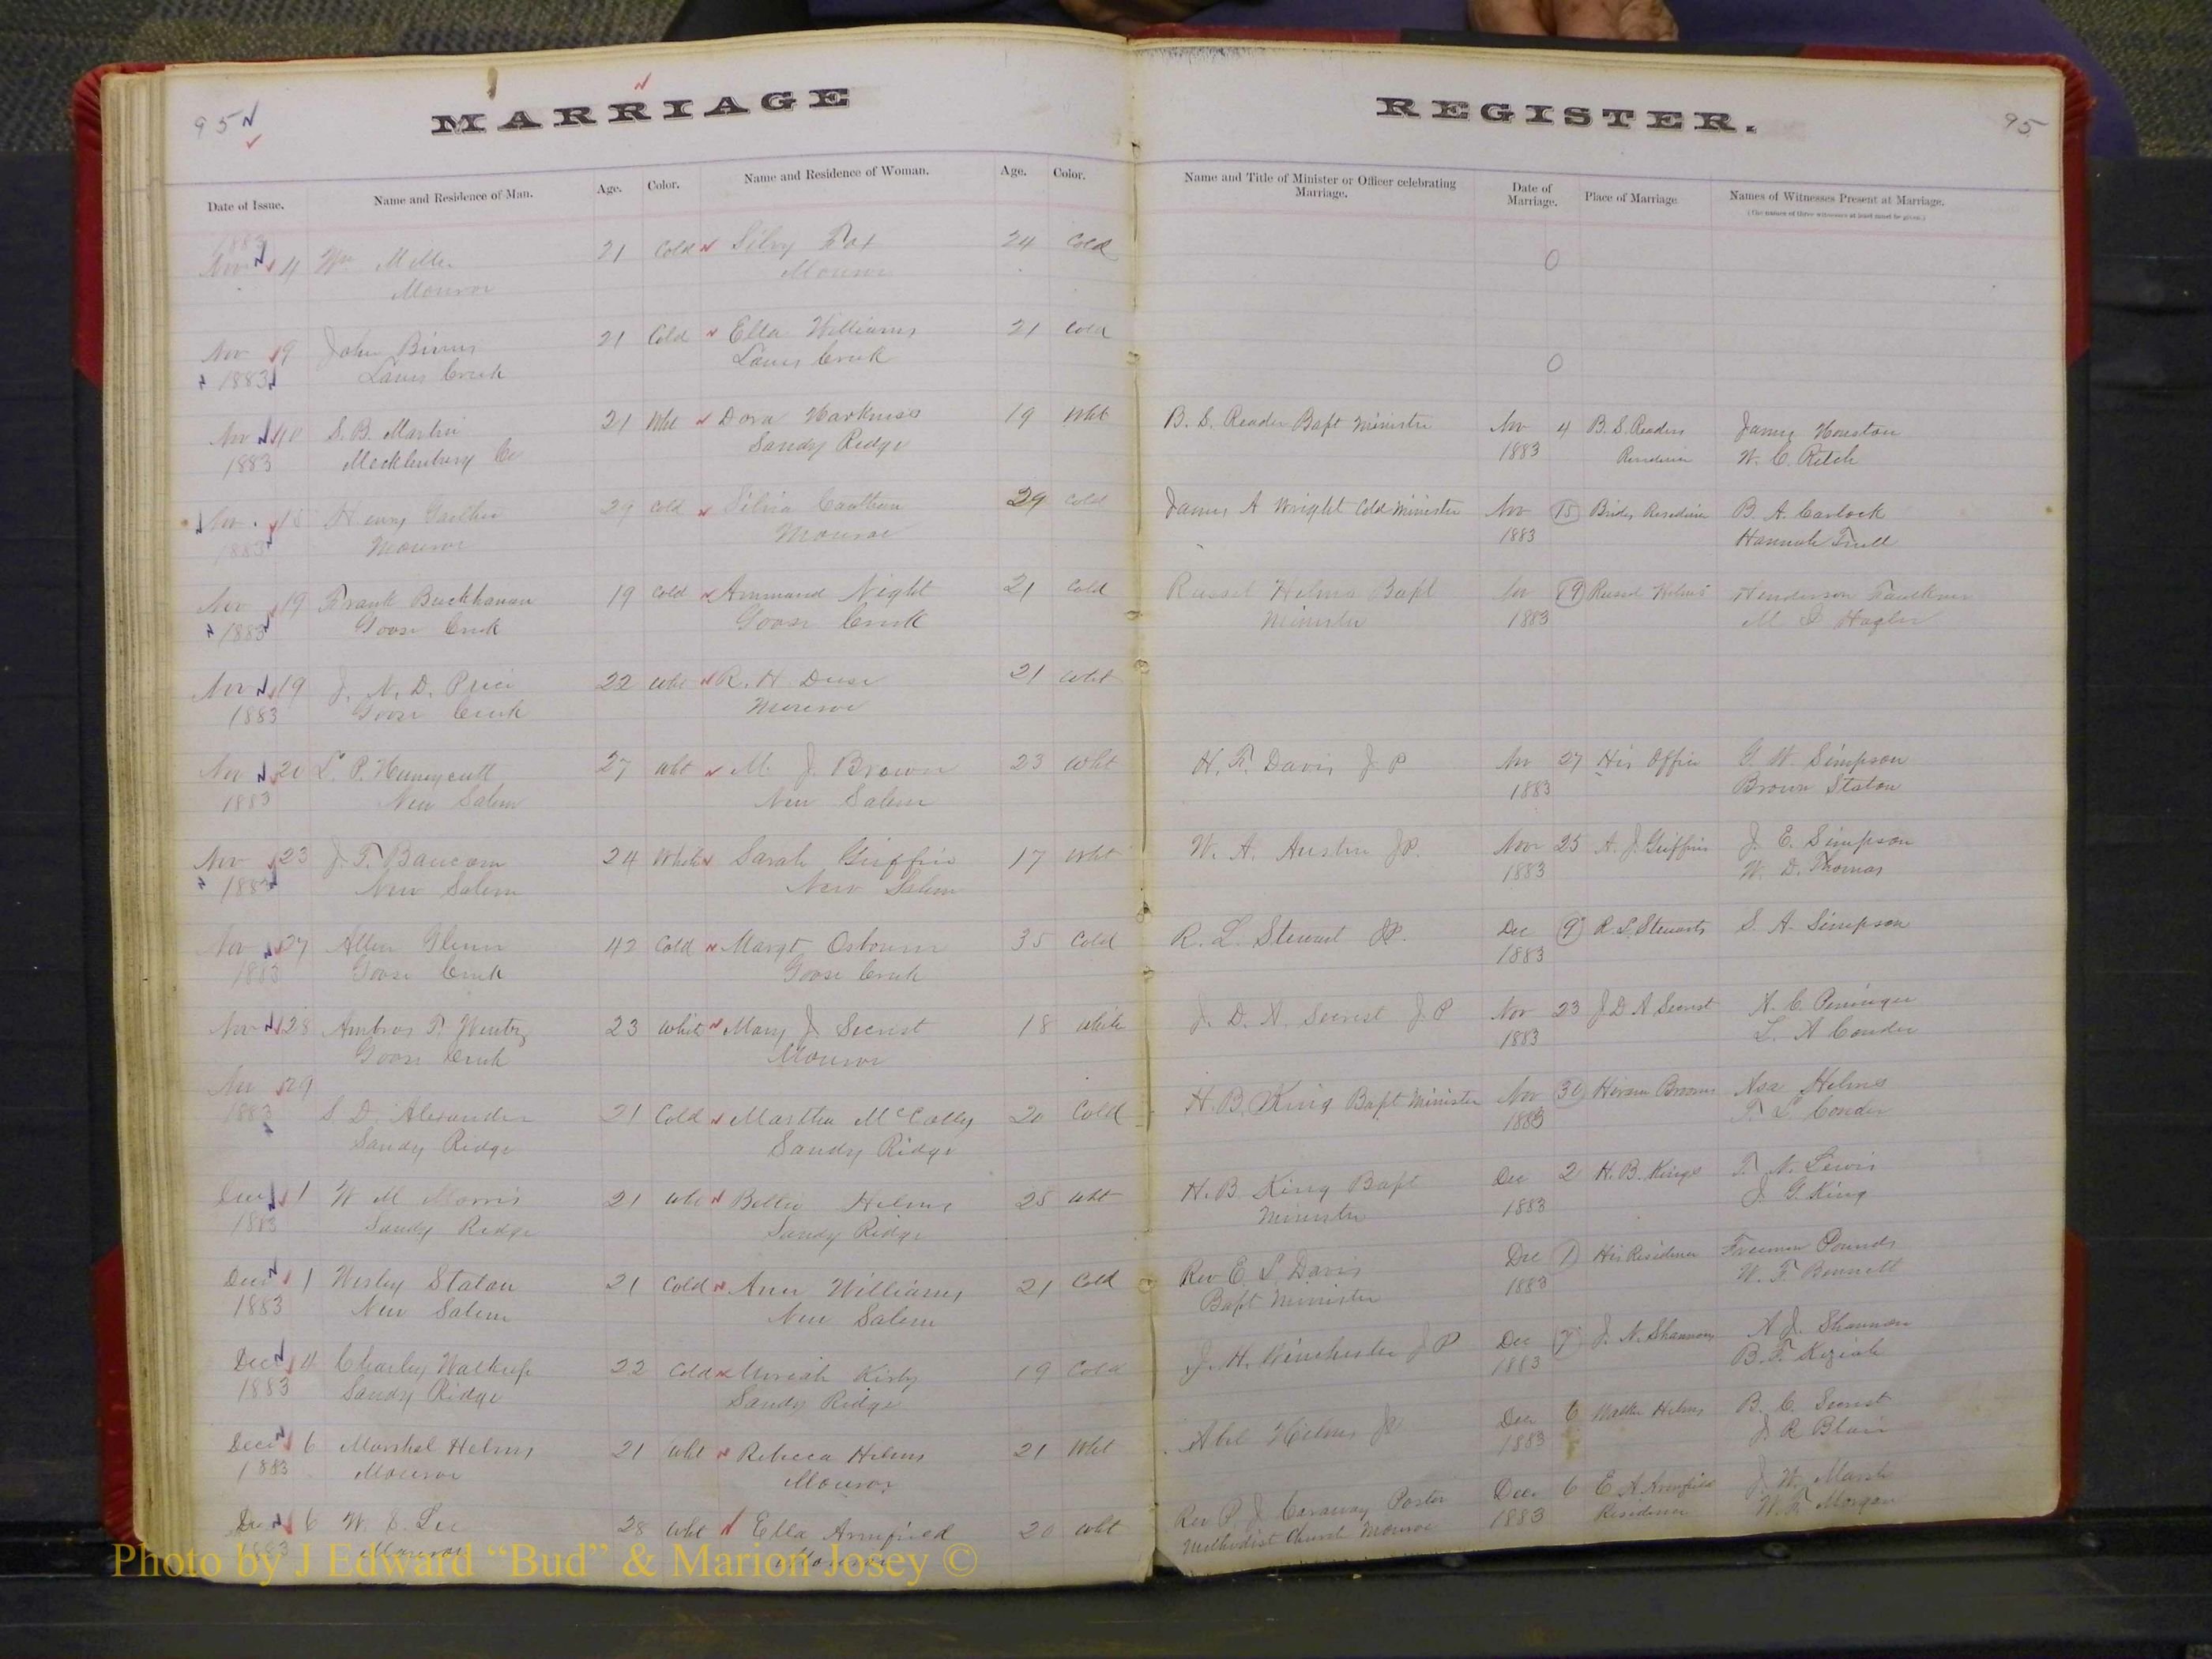 95
MARRIAGE
REGISTER.
95
Date of Issue.
Name and Residence of Man.
Age.
Color.
Name and Residence of Woman.
Age.
Color.
Name and Title of Minister or Officer celebrating
Marriage.
Date of
Marriage.
Place of Marriage
Names of Witnesses Present at Marriage.
(The names of three witnesses at least must be given.)
1883
Nov 4 Wm Miller 21 Cold Silvy Fox 24 Cold 0
Monroe Monroe
Nov 9 John Bivins 21 Cold Ella Williams 21 Cold 0
1883 Lanes Creek Lanes Creek
Nov 10 S. B. Martin 21 Wht Dora Harkness 19 Wht B. S. Reader Bapt Minister Nov 4 B. S. Readers James Houston
1883 Mecklenburg Co Sandy Ridge 1883 Residence W. C. Ritch
Nov 15 Henry 29 Cold Silvia 29 Cold James A Wright Cold Minister Nov 15 Brides Residence B. A. Carlock
1883 Monroe Monroe 1883 Hannah Trull
Nov 19 Frank Buckhanan 19 Cold Ammand Night 21 Cold Russel Helms Bapt Nov 19 Russel Helms Henderson Faulkner
1883 Goose Creek Goose Creek Minister 1883 M Hagler
Nov 19 J. N. D. Price 22 Wht R. H. Deese 21 Wht
1883 Goose Creek Monroe
Nov 20 L. P. Huneycutt 27 Wht M. J. Brown 23 Wht H. F. Davis J P Nov 27 His Office G. W. Simpson
1883 New Salem New Salem 1883 Brown Staton
Nov 23 J. T. Baucom 24 White Sarah Griffin 17 Wht W. A. Austin JP. Nov 25 A. J. Griffins J. E. Simpson
1883 New Salem New Salem 1883 W. D. Thomas
Nov 27 Allen Glenn 42 Cold Margt Osbourn 35 Cold R. L. Stewart JP. Dec 9 R. L. Stewarts S. A. Simpson
1883 Goose Creek Goose Creek 1883
Nov 28 Ambros P. Wentz 23 White Mary J Secrest 18 White J. D. A. Secrest J. P Nov 23 J D A Secrest
Goose Creek Monroe 1883 L. A Conder
Nov 29
1883 S. D. Alexander 21 Cold Martha McCally 20 Cold H. B. King Bapt Minister Nov 30 Hiram Brooms Asa Helms
Sandy Ridge Sandy Ridge 1883 T. L. Conder
Dec 1 W M Morris 21 Wht Bettie Helms 25 Wht H. B King Bapt Dec 2 H. B. Kings T. N. Lewis
1883 Sandy Ridge Sandy Ridge Minister 1883 J. G. King
Dec 1 Wesley Staton 21 Cold Ann Williams 21 Cold Rev E. L. Davis Dec 1 His Residence Freeman Pounds
1883 New Salem New Salem Bapt Minister 1883 W. F. Bennett
Dec 4 Charley Walkup 22 Cold Kirby 19 Cold J. H. Winchester J P Dec 7 J. N. Shannons A J. Shannon
1883 Sandy Ridge Sandy Ridge 1883 B. F. Keziah
Dec 6 Marshal Helms 21 Wht Rebecca Helms 21 Wht Abel Helms JP Dec 6 Helms B. C. Secrest
1883 Monroe Monroe 1883 J R Blair
Dec 6 W. Lee 28 Wht Ella Armfield 20 Wht Rev P. J. Caraway Pastor Dec 6 E A Armfield J. W. Marsh
1883 Monroe Monroe Methodist Church Monroe 1883 Residence W. F. Morgan
Photo by J Edward “Bud” & Marion Josey ©